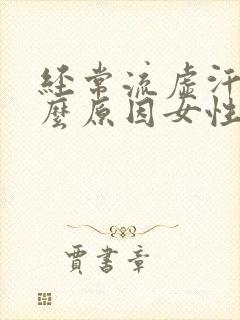 经常流虚汗
麼原因女性
賈書章